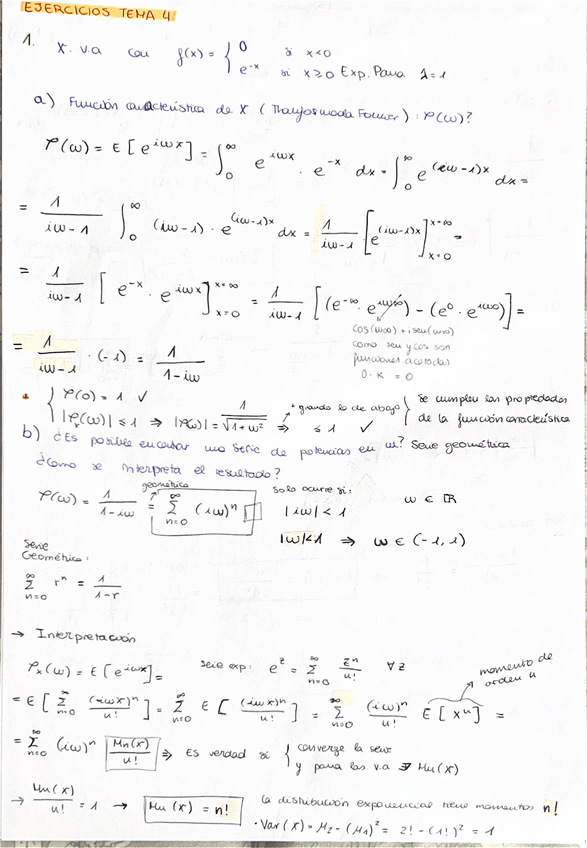 EJERCICIOS TEMA 4
1. X. v.a con f(x) = { 0 si x<0
e^{-x} si x≥0 Exp. Para λ=1
a) Función característica de X (Transformada Fourier): φ(ω)?
φ(ω) = E[e^{iωx}] = ∫_0^∞ e^{iωx} · e^{-x} dx = ∫_0^∞ e^{(iω-1)x} dx =
= 1/(iω-1) ∫_0^∞ (iω-1) · e^{(iω-1)x} dx = 1/(iω-1) [e^{(iω-1)x}]_{x=0}^{x=∞} =
= 1/(iω-1) [e^{-x} · e^{iωx}]_{x=0}^{x=∞} = 1/(iω-1) [(e^{-∞} · e^{iω∞}) - (e^0 · e^{iω0})] =
cos(ω∞) + i sen(ω∞)
como sen y cos son
funciones acotadas
0 · K = 0
= 1/(iω-1) · (-1) = 1/(1-iω)
{ φ(0) = 1 ✓
|φ_x(ω)| ≤ 1 ⇒ |φ(ω)| = 1/√(1+ω²) ⇒ ≤ 1 ✓ + grande lo de abajo } Se cumplen las propiedades
de la función característica
b) ¿Es posible encausar una serie de potencias en ω? Serie geométrica
¿Cómo se interpreta el resultado?
geométrica
φ(ω) = 1/(1-iω) = Σ_{n=0}^∞ (iω)^n
Solo ocurre si: ω ∈ ℝ
|iω| < 1
|ω| < 1 ⇒ ω ∈ (-1, 1)
Serie
Geométrica:
Σ_{n=0}^∞ r^n = 1/(1-r)
→ Interpretación
φ_x(ω) = E[e^{iωx}] = serie exp: e^z = Σ_{n=0}^∞ z^n/n! ∀z
momento de
orden n
= E[Σ_{n=0}^∞ (iωX)^n/n!] = Σ_{n=0}^∞ E[(iωX)^n/n!] = Σ_{n=0}^∞ (iω)^n/n! E[X^n] =
= Σ_{n=0}^∞ (iω)^n Mn(X)/n! ⇒ Es verdad si { converge la serie
y para las v.a ∃ Mn(X)
→ Mn(X)/n! = 1 → Mn(X) = n! la distribución exponencial tiene momentos n!
· Var(X) = M2 - (M1)² = 2! - (1!)² = 1